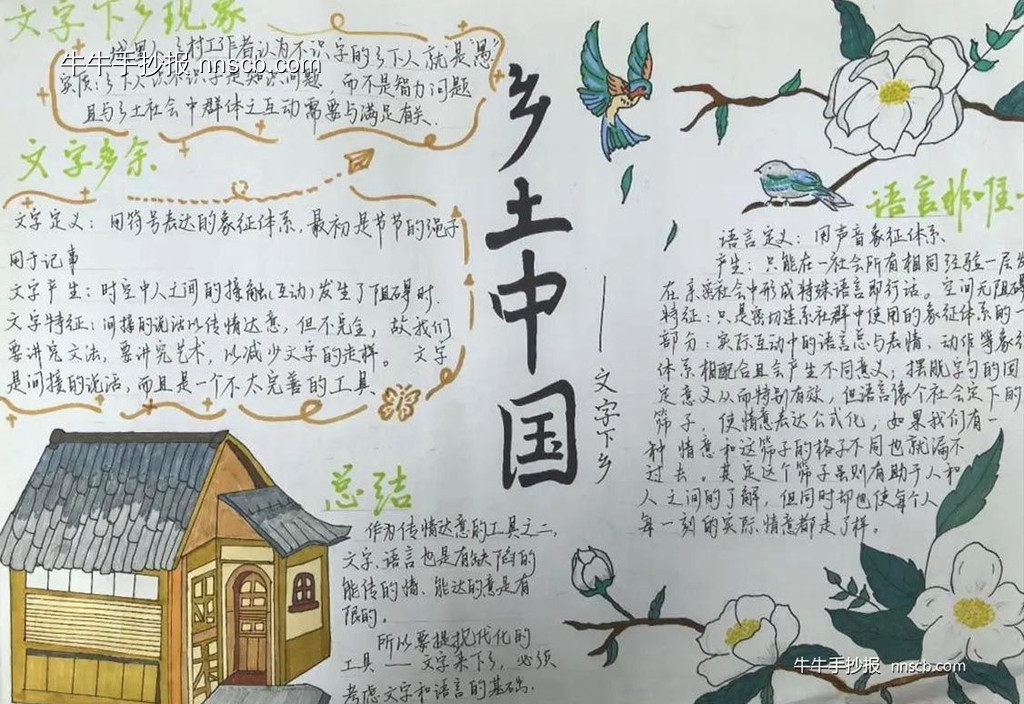 文字下乡现象
村工作者认为不识字的乡下人就是"愚"
实质:乡下人识不识字是知识问题,而不是智力问题
且与乡土社会中群体之互动需要与满足有关.
牛牛手抄报 nnscb.com
文字多余
文字定义:用符号表达的象征体系,最初是节节的绳子
用于记事
文字产生:时空中人之间的接触(互动)发生了阻碍时.
文字特征:间接的说话以传情达意,但不完全,故我们
要讲究文法,要讲究艺术,以减少文字的走样。 文字
是间接的说话,而且是一个不太完善的工具
乡土中国
——文字下乡
语言非唯一
语言定义:用声音象征体系
产生:只能在一社会所有相同经验一层发
在亲密社会中形成特殊语言即行话。空间无阻碍
特征:只是密切连系社群中使用的象征体系的一
部分:实际互动中的语言总与表情、动作等象征
体系相配合且会产生不同意义;摆脱字句的固
定意义从而特别有效,但语言像个社会定下的
筛子,使情意表达公式化,如果我们有一
种情意和这筛子的格子不同也就漏不
过去。其定这个筛子虽则有助于人和
人之间的了解,但同时却也使每个人
每一刻的实际情意都走了样。
总结
作为传情达意的工具之二,
文字、语言也是有缺陷的
能传的情、能达的意是有
限的.
所以要提现代化的
工具——文字来下乡,必须
考虑文字和语言的基础.
牛牛手抄报 nnscb.com